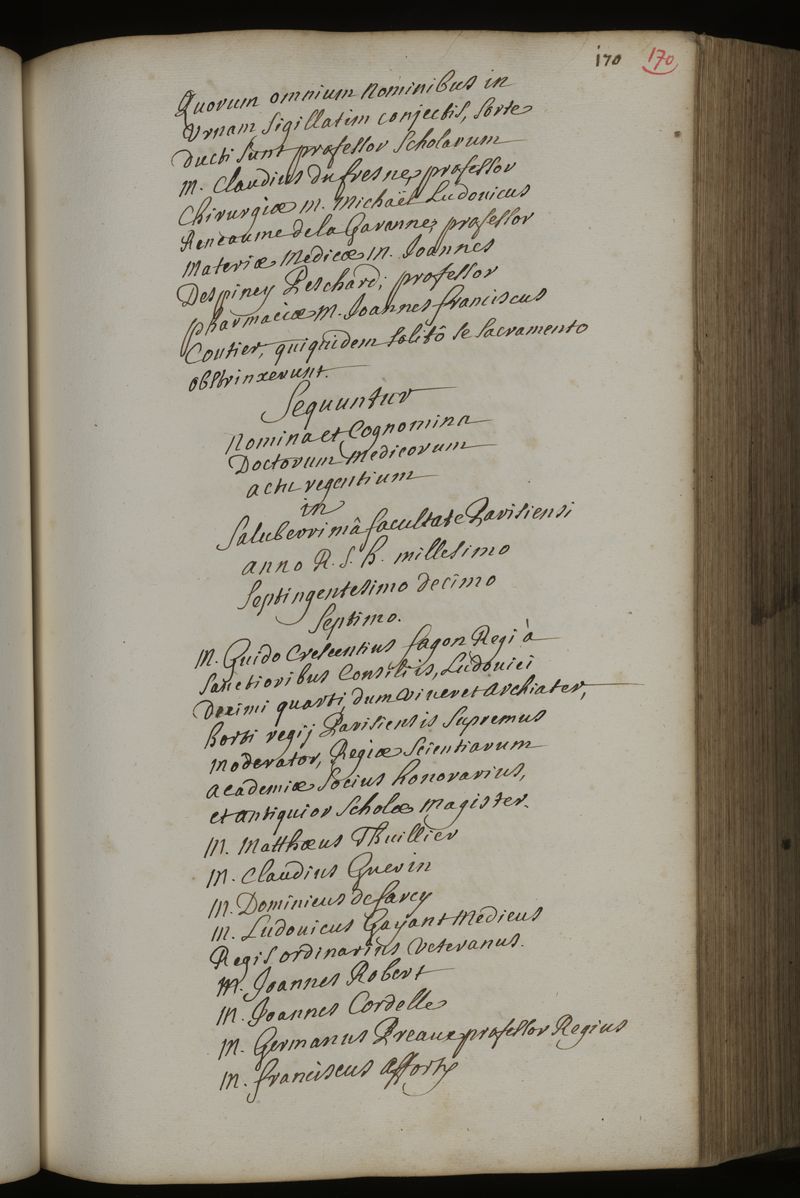 170 170
Quorum omnium nominibus in
Urnam sigillatim conjectis, sorte
ducti sunt professor Scholarum
M. Claudius dufresne, professor
Chirurgiæ M. Michaël Ludovicus
Reneaume de la Garanne, professor
Materiæ Medicæ M. Joannes
Despiney Peschard; professor
pharmaciæ M. Joannes franciscus
Coutier, quiquidem solitô se sacramento
obstrinxerunt.
Sequuntur
Nomina et Cognomina
Doctorum Medicorum
actu regentium
in
Saluberrimâ facultate Parisiensi
anno R. S. h. millesimo
Septingentesimo decimo
Septimo.
M. Guido Crescentius fagon Regi à
Sanctioribus Consiliis, Ludovici
Decimi quarti, dum viveret Archiater,
horti regij Parisiensis Supremus
Moderator, Regiæ Scientiarum
academiæ Socius honorarius,
et antiquior Scholæ Magister.
M. Matthæus Thuillier
M. Claudius Guerin
M. Dominicus de farcy
M. Ludovicus Gayant Medicus
Regis ordinarius veteranus.
M. Joannes Robert
M. Joannes Cordelle
M. Germanus Preaux professor Regius
M. franciscus afforty